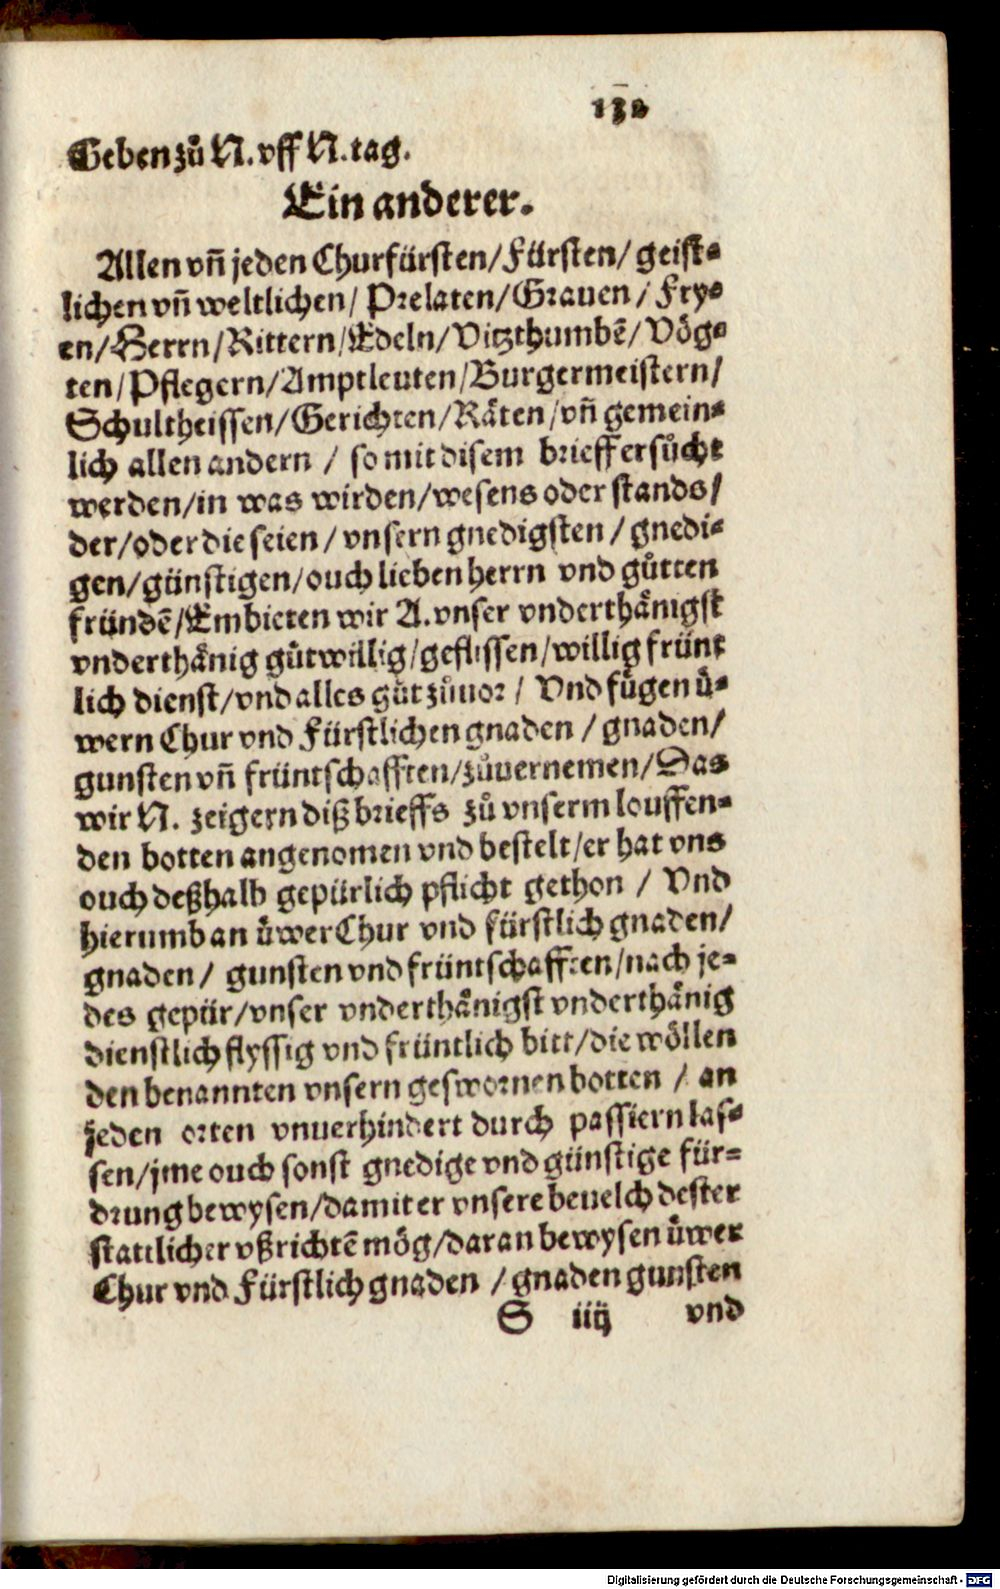 132
Geben zů N. vff N. tag.
Ein anderer.
Allen vn̄ jeden Churfürsten/Fürsten/ geist⸗
lichen vn̄ weltlichen/ Prelaten/Grauen/ Fry⸗
en/Herrn/Rittern/Edeln/Vitzthumbē/Vög⸗
ten/Pflegern/Amptleuten/Burgermeistern/
Schultheissen/Gerichten/Räten/vn̄ gemein⸗
lich allen andern / so mit disem brieff ersůcht
werden/in was wirden/wesens oder stands/
der/oder die seien / vnsern gnedigsten / gnedi⸗
gen/günstigen/ouch lieben herrn vnd gůtten
fründē/Embieten wir A. vnser vnderthänigst
vnderthänig gůtwillig/geflissen/willig frünt
lich dienst/vnd alles gůt zůuor / Vnd fůgen ü⸗
wern Chur vnd Fürstlichen gnaden / gnaden/
gunsten vn̄ früntschafften/zůuernemen/Das
wir N. zeigern diß brieffs zů vnserm louffen⸗
den botten angenomen vnd bestelt/er hat vns
ouch deßhalb gepürlich pflicht gethon / Vnd
hierumb an üwer Chur vnd fürstlich gnaden/
gnaden / gunsten vnd früntschafften/nach je⸗
des gepür/vnser vnderthänigst vnderthänig
dienstlich flyssig vnd früntlich bitt/die wöllen
den benannten vnsern geswornen botten / an
jeden orten vnuerhindert durch passiern las⸗
sen/jme ouch sonst gnedige vnd günstige für⸗
drung bewysen/damit er vnsere beuelch dester
stattlicher vßrichtē mög/daran bewysen üwer
Chur vnd Fürstlich gnaden / gnaden gunsten
S iiij vnd
Digitalisierung gefördert durch die Deutsche Forschungsgemeinschaft - DFG